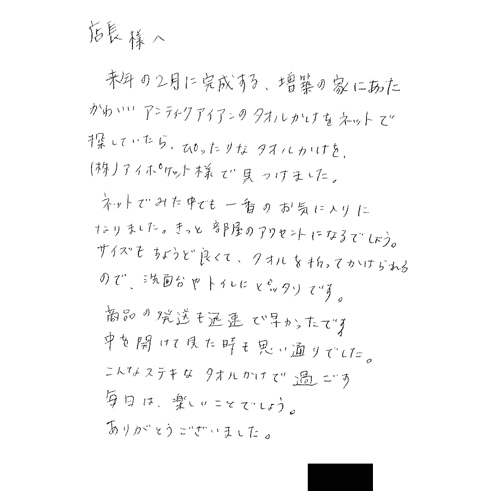 店長様へ
来年の2月に完成する、増築の家にあった
かわいいアンティークアイアンのタオルかけをネットで
探していたら、ぴったりなタオルかけを、
(株)アイポケット様で見つけました。
ネットでみた中でも一番のお気に入りに
なりました。きっと部屋のアクセントになるでしょう。
サイズもちょうど良くて、タオルを折ってかけられる
ので、洗面台やトイレにピッタリです。
商品の発送も迅速で早かったです
中を開けて見た時も思い通りでした。
こんなステキなタオルかけで過ごす
毎日は、楽しいことでしょう。
ありがとうございました。